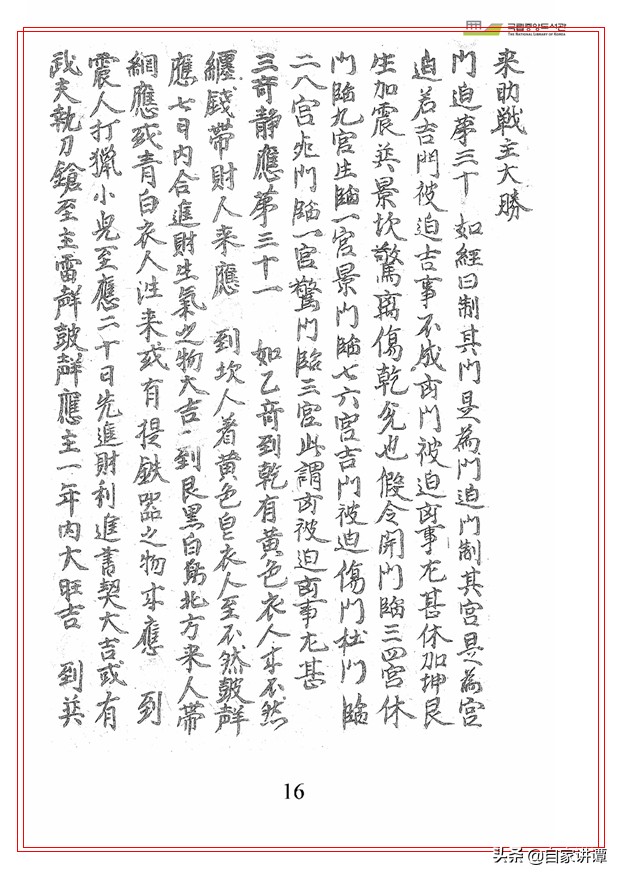 국립중앙도서관
THE NATIONAL LIBRARY OF KOREA
来助戦主大勝
門迫苐三十 如經曰制其門是為門迫門制其宮是為宮
迫若吉門被迫吉事不成凶門被迫凶事尤甚休加坤艮
生加震巽景坎驚离傷乾兊也假令開門臨三四宮休
門臨九宮生臨一宮景門臨七六宮吉門被迫傷門杜門臨
二八宮死門臨一宮驚門臨三宮此謂凶被迫凶事尤甚
三奇静應苐三十一 如乙奇到乾有黄色衣人来不然
纒錢帶財人来應 到坎人着黄色皂衣人至不然皷声
應七日内合進財生氣之物大吉 到艮黑白 北方来人帶
網應或青白衣人往来或有提鉄器之物来應 到
震人打猟小兒至應二十日先進財利進書契大吉或有
武夫執刀鎗至主雷声皷声應主一年内大旺吉 到巽
16
头条 @自家讲谭